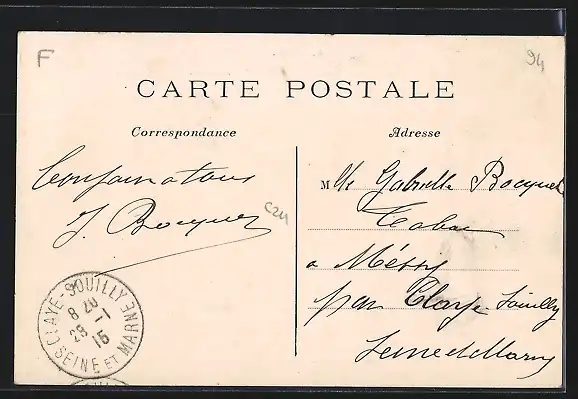 F
94
CARTE POSTALE
Correspondance
Adresse
Bonjour a tous
J. Bocquet
C2M
Mlle Gabrielle Bocquet
Tabac
a Messy
par Claye Souilly
Seine et Marne
CLAYE-SOUILLY
8 20
28 -1
15
SEINE ET MARNE